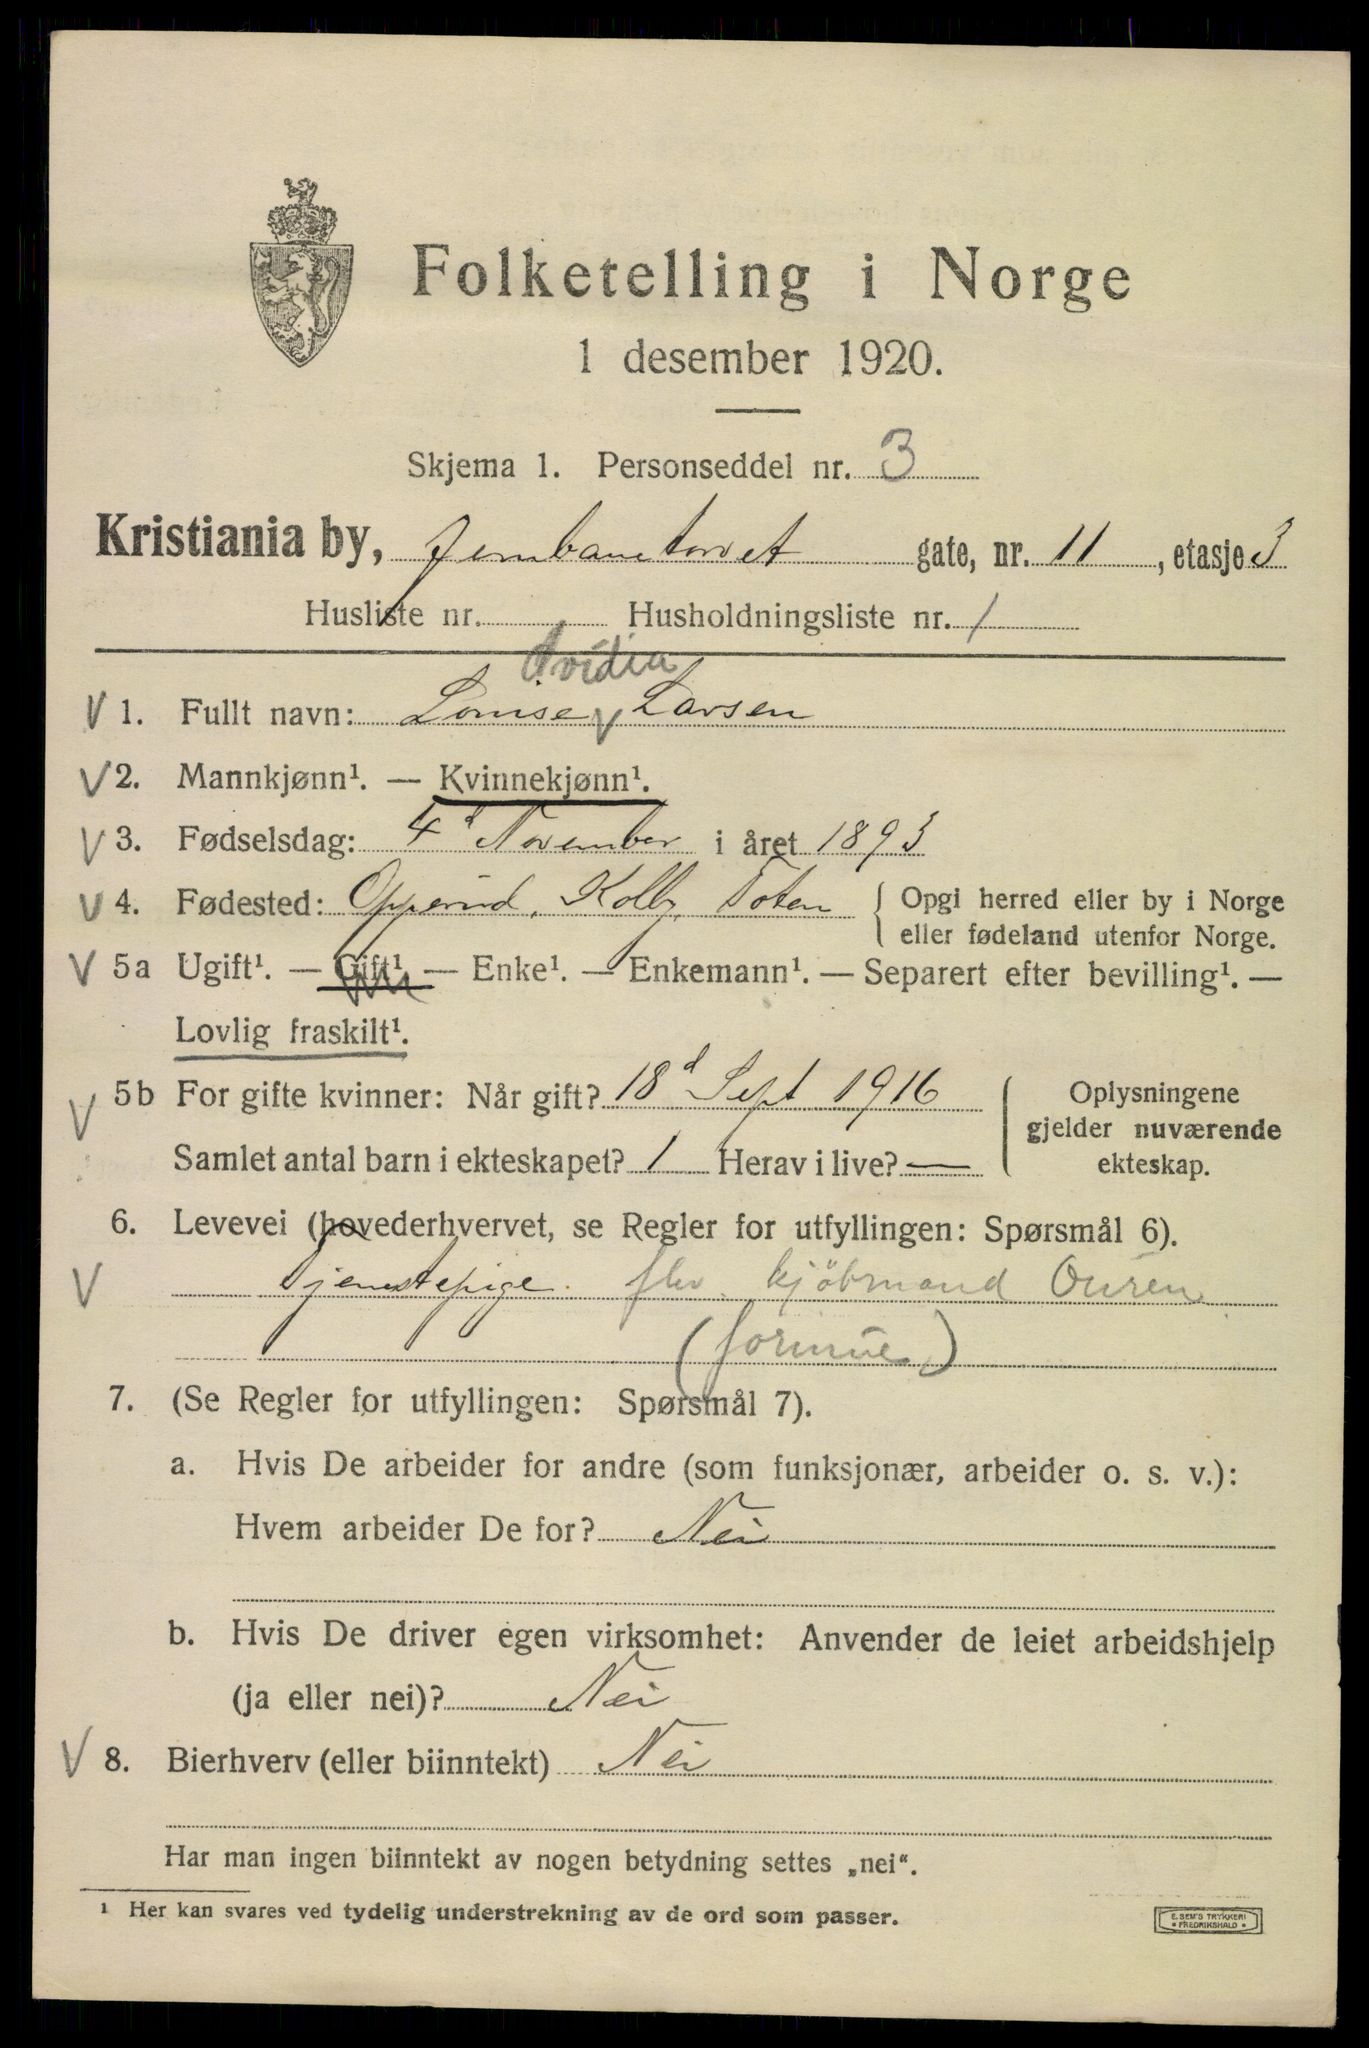 Folketelling i Norge
1 desember 1920.
Skjema 1. Personseddel nr. 3
Kristiania by, Jernbanetorvet gate, nr. 11, etasje 3
Husliste nr. Husholdningsliste nr. 1
Ovidia
V 1. Fullt navn: Louise V Larsen
V 2. Mannkjønn¹. — Kvinnekjønn¹.
V 3. Fødselsdag: 4d November i året 1893
V 4. Fødested: Opperud, Kolby, Toten { Opgi herred eller by i Norge
eller fødeland utenfor Norge.
V 5a Ugift¹. — Gift¹. — Enke¹. — Enkemann¹. — Separert efter bevilling¹. —
Lovlig fraskilt¹.
V 5b For gifte kvinner: Når gift? 18d Sept 1916
Samlet antal barn i ekteskapet? 1 Herav i live? —
Oplysningene
gjelder nuværende
ekteskap.
6. Levevei (hovederhvervet, se Regler for utfyllingen: Spørsmål 6).
V Tjenestepige. kjöbmand Ouren
(formue)
7. (Se Regler for utfyllingen: Spørsmål 7).
a. Hvis De arbeider for andre (som funksjonær, arbeider o. s. v.):
Hvem arbeider De for? Nei
b. Hvis De driver egen virksomhet: Anvender de leiet arbeidshjelp
(ja eller nei)? Nei
V 8. Bierhverv (eller biinntekt) Nei
Har man ingen biinntekt av nogen betydning settes „nei“.
¹ Her kan svares ved tydelig understrekning av de ord som passer.
E. SEM'S TRYKKERI
FREDRIKSHALD